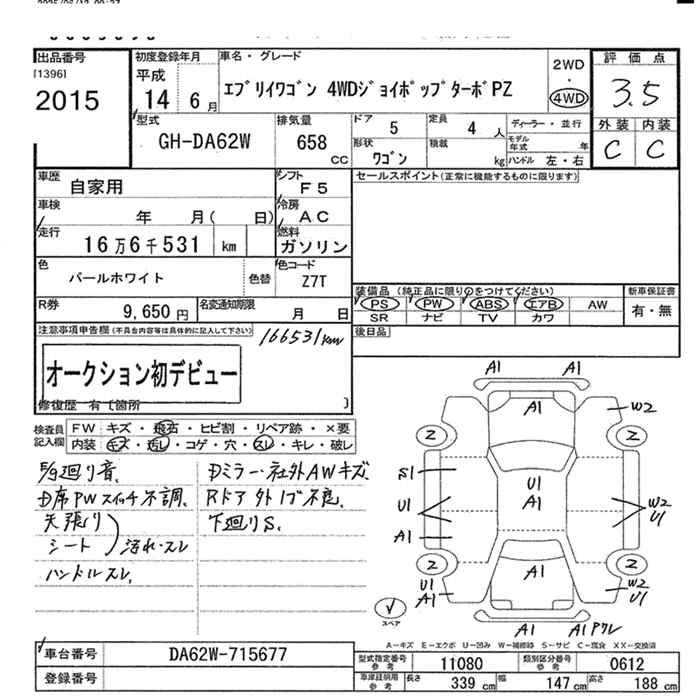 出品番号
[1396]
2015
初度登録年月
平成
14 6 月
車名・グレード
エブリイワゴン 4WDジョイポップターボPZ
2WD
・
4WD
評価点
3.5
外装 内装
C C
型式
GH-DA62W
排気量
658
cc
ドア
5
定員
4 人
形状
ワゴン
積載
kg
ディーラー・並行
モデル年式 年
ハンドル 左・右
車歴
自家用
シフト
F5
車検
年 月( 日)
冷房
AC
走行
16万6千531 km
燃料
ガソリン
色
パールホワイト
色替
色コード
Z7T
R券
9,650円
名変通知期限
月 日
セールスポイント(正常に機能するものに限ります)
装備品(純正品に限り○をつけてください)
PS PW ABS エアB AW
SR ナビ TV カワ
新車保証書
有・無
後日品
注意事項申告欄(不具合内容等は具体的に記入して下さい)
166531km
オークション初デビュー
修復歴 有〔箇所 〕
検査員記入欄
FW キズ・飛石・ヒビ割・リペア跡・×要
内装 キズ・汚れ・コゲ・穴・スレ・キレ・破レ
E/g廻り音、
D席PWスイッチ不調、
天張り
シート
汚れ・スレ
ハンドルスレ、
Dミラー・社外AWキズ
Rドア外ノブ不良、
下廻りS、
A1 A1
A1
W2
2 2
S1
U1
A1
U1
A1
W2
U1
2 2
U1
A1
A1
W2
U1
スペア
A1 A1ワレ
A－キズ E－エクボ U－凹み W－補修跡 S－サビ C－腐食 XX－交換済
車台番号
DA62W-715677
登録番号
型式指定番号
参考
11080
類別区分番号
参考
0612
車庫証明用
参考
長さ 339 cm
幅 147 cm
高さ 188 cm